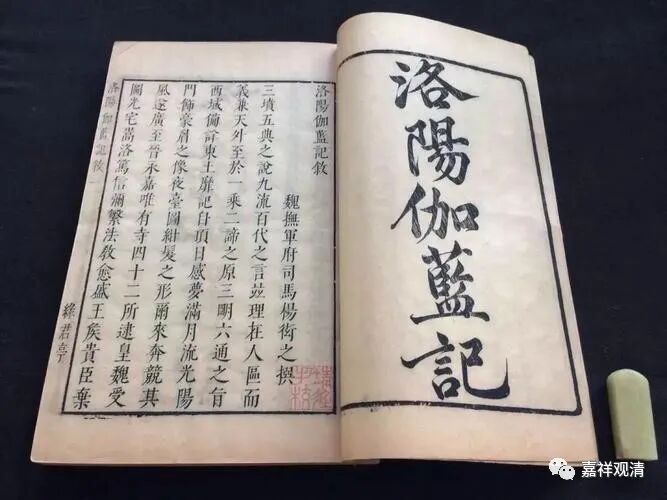 洛陽伽藍記
洛陽伽藍記敘
魏撫軍府司馬楊衒之撰
三墳五典之說九流百代之言竝理在人區而
義兼天外至於一乘二諦之原三明六通之旨
西域備詳東土靡記自項日感夢滿月流光陽
門飾豪眉之像夜臺圖紺髮之形爾來奔競其
風遂廣至晉永嘉唯有寺四十二所逮皇魏受
圖光宅嵩洛篤信彌繁法教愈盛王侯貴臣棄
洛陽伽藍記敘 一
綠君亭
嘉祥观清